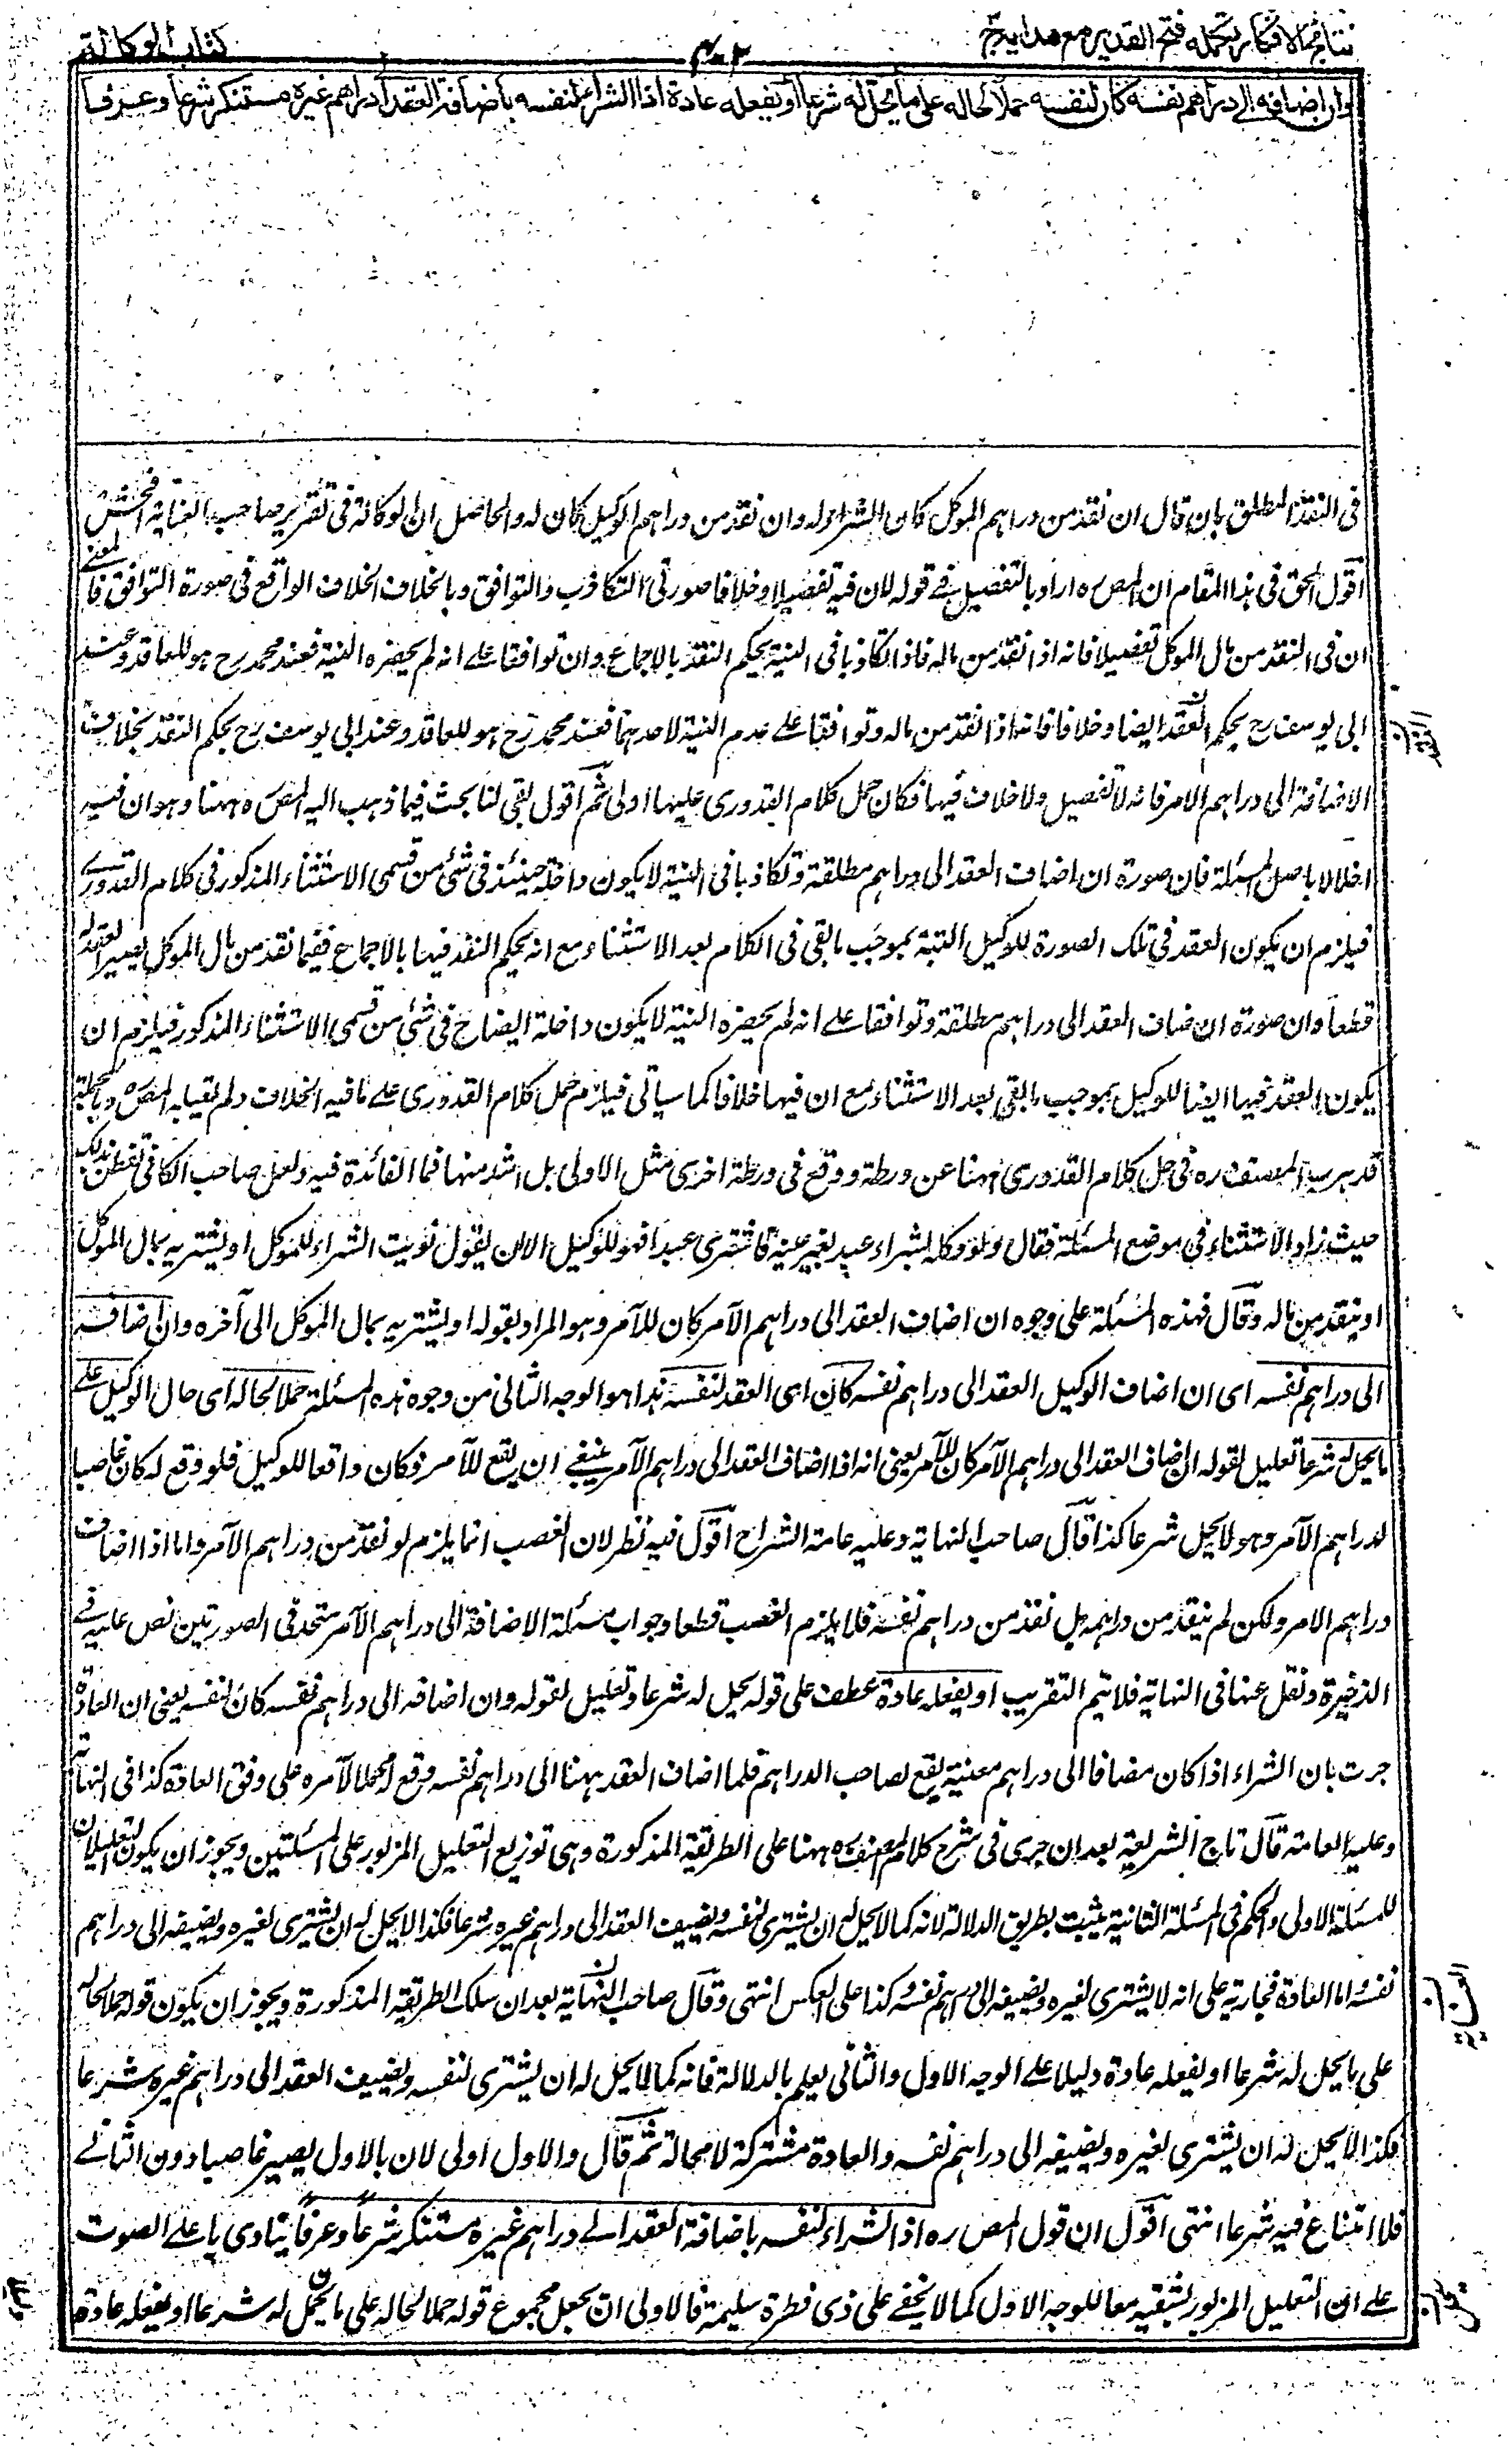 نتائج الافكار تكملة فتح القدير مع هداية ج
كتاب الوكالة
وان اضافه الى دراهم نفسه كان لنفسه حملا لحاله على ما يحل له شرعا او يفعله عادة اذ الشراء لنفسه باضافة العقد الى دراهم غيره مستنكر شرعا وعرفا
فى النقد المطلق بان قال ان نقد من دراهم الموكل كان الشراء له وان نقد من دراهم الوكيل كان له والحاصل ان الوكالة فى تقرير صاحب العناية افحش
اقول الحق فى هذا المقام ان المص ره اراد بالتفصيل فى قوله لان فيه تفصيلا وخلافا صورتى التكاذب والتوافق وبالخلاف الخلاف الواقع فى صورة التوافق فالمعنى
ان فى النقد من مال الموكل تفصيلا فانه اذا نقد من ماله فاذا تكاذبا فى النية يحكم النقد بالاجماع وان توافقا على انه لم يحضره النية فعند محمد رح هو للعاقد وعند
ابى يوسف رح يحكم النقد ايضا وخلافا فانه اذا نقد من ماله وتوافقا على عدم النية لاحدهما فعند محمد رح هو للعاقد وعند ابى يوسف رح يحكم النقد بخلاف
الاضافة الى دراهم الامر فانه لا تفصيل ولا خلاف فيها فكان حمل كلام القدورى عليها اولى ثم اقول بقى لنا بحث فيما ذهب اليه المص ه ههنا وهو ان فيه
اخلالا باصل المسئلة فان صورة ان اضاف العقد الى دراهم مطلقة وتكاذبا فى النية لا يكون داخلة حينئذ فى شئ من قسمى الاستثناء المذكور فى كلام القدورى
فيلزم ان يكون العقد فى تلك الصورة للوكيل البتة بموجب ما بقى فى الكلام بعد الاستثناء مع انه يحكم النقد فيها بالاجماع ففيما نقد من مال الموكل يصير العقد له
قطعا وان صورة ان اضاف العقد الى دراهم مطلقة وتوافقا على انه لم يحضره النية لا يكون داخلة ايضا ح فى شئ من قسمى الاستثناء المذكور فيلزم ان
يكون العقد فيها ايضا للوكيل بموجب ما بقى بعد الاستثناء مع ان فيها خلافا كما سياتى فيلزم حمل كلام القدورى على ما فيه الخلاف ولم يقل به المص ره وبالجملة
قد هرب المصنف ره فى حل كلام القدورى ههنا عن ورطة ووقع فى ورطة اخرى مثل الاولى بل اشد منها فما الفائدة فيه ولعل صاحب الكافى تفطن لذلك
حيث زاد الاستثناء فى موضع المسئلة فقال ولو وكله بشراء عبد بغير عينه فاشترى عبدا فهو للوكيل الا ان يقول نويت الشراء للموكل او يشتريه بمال الموكل
او ينقد من ماله وقال فهذه المسئلة على وجوه ان اضاف العقد الى دراهم الآمر كان للآمر وهو المراد بقوله او يشتريه بمال الموكل الى آخره وان اضافه
الى دراهم نفسه اى ان اضاف الوكيل العقد الى دراهم نفسه كان اى العقد لنفسه هذا هو الوجه الثانى من وجوه هذه المسئلة حملا لحاله اى حال الوكيل على
ما يحل له شرعا تعليل لقوله ان اضاف العقد الى دراهم الآمر كان للآمر يعنى انه اذا اضاف العقد الى دراهم الآمر ينبغى ان يقع للآمر فكان واقعا للوكيل فلو وقع له كان غاصبا
لدراهم الآمر وهو لا يحل شرعا كذا قال صاحب النهاية وعليه عامة الشراح اقول فيه نظر لان الغصب انما يلزم لو نقد من دراهم الآمر واما اذا اضاف
دراهم الامر ولكن لم ينقد من دراهمه بل نقد من دراهم نفسه فلا يلزم الغصب قطعا وجواب مسئلة الاضافة الى دراهم الآمر متحد فى الصورتين نص عليه فى
الذخيرة ونقل عنها فى النهاية فلا يتم التقريب او يفعله عادة عطف على قوله يحل له شرعا وتعليل لقوله وان اضافه الى دراهم نفسه كان لنفسه يعنى ان العادة
جرت بان الشراء اذا كان مضافا الى دراهم معينة يقع لصاحب الدراهم فلما اضاف العقد ههنا الى دراهم نفسه وقع له حملا لامره على وفق العادة كذا فى النهاية
وعليه العامة قال تاج الشريعة بعد ان جرى فى شرح كلام المصنف ره ههنا على الطريقة المذكورة وهى توزيع التعليل المزبور على المسئلتين ويجوز ان يكون التعليلان
للمسئلة الاولى والحكم فى المسئلة الثانية يثبت بطريق الدلالة لانه كما لا يحل له ان يشترى لنفسه ويضيف العقد الى دراهم غيره شرعا فكذا لا يحل له ان يشترى لغيره ويضيفه الى دراهم
نفسه واما العادة فجارية على انه لا يشترى لغيره ويضيفه الى دراهم نفسه وكذا على العكس انتهى وقال صاحب النهاية بعد ان سلك الطريقة المذكورة ويجوز ان يكون قوله حملا لحاله
على ما يحل له شرعا او يفعله عادة دليلا على الوجه الاول والثانى يعلم بالدلالة فانه كما لا يحل له ان يشترى لنفسه ويضيف العقد الى دراهم غيره شرعا
فكذا لا يحل له ان يشترى لغيره ويضيفه الى دراهم نفسه والعادة مشتركة لا محالة ثم قال والاول اولى لان بالاول يصير غاصبا دون الثانى
فلا امتناع فيه شرعا انتهى اقول ان قول المص ره اذ الشراء لنفسه باضافة العقد الى دراهم غيره مستنكر شرعا وعرفا ينادى باعلى الصوت
على ان التعليل المزبور بشقيه معا للوجه الاول كما لا يخفى على ذى فطرة سليمة فالاولى ان يجعل مجموع قوله حملا لحاله على ما يحل له شرعا او يفعله عادة